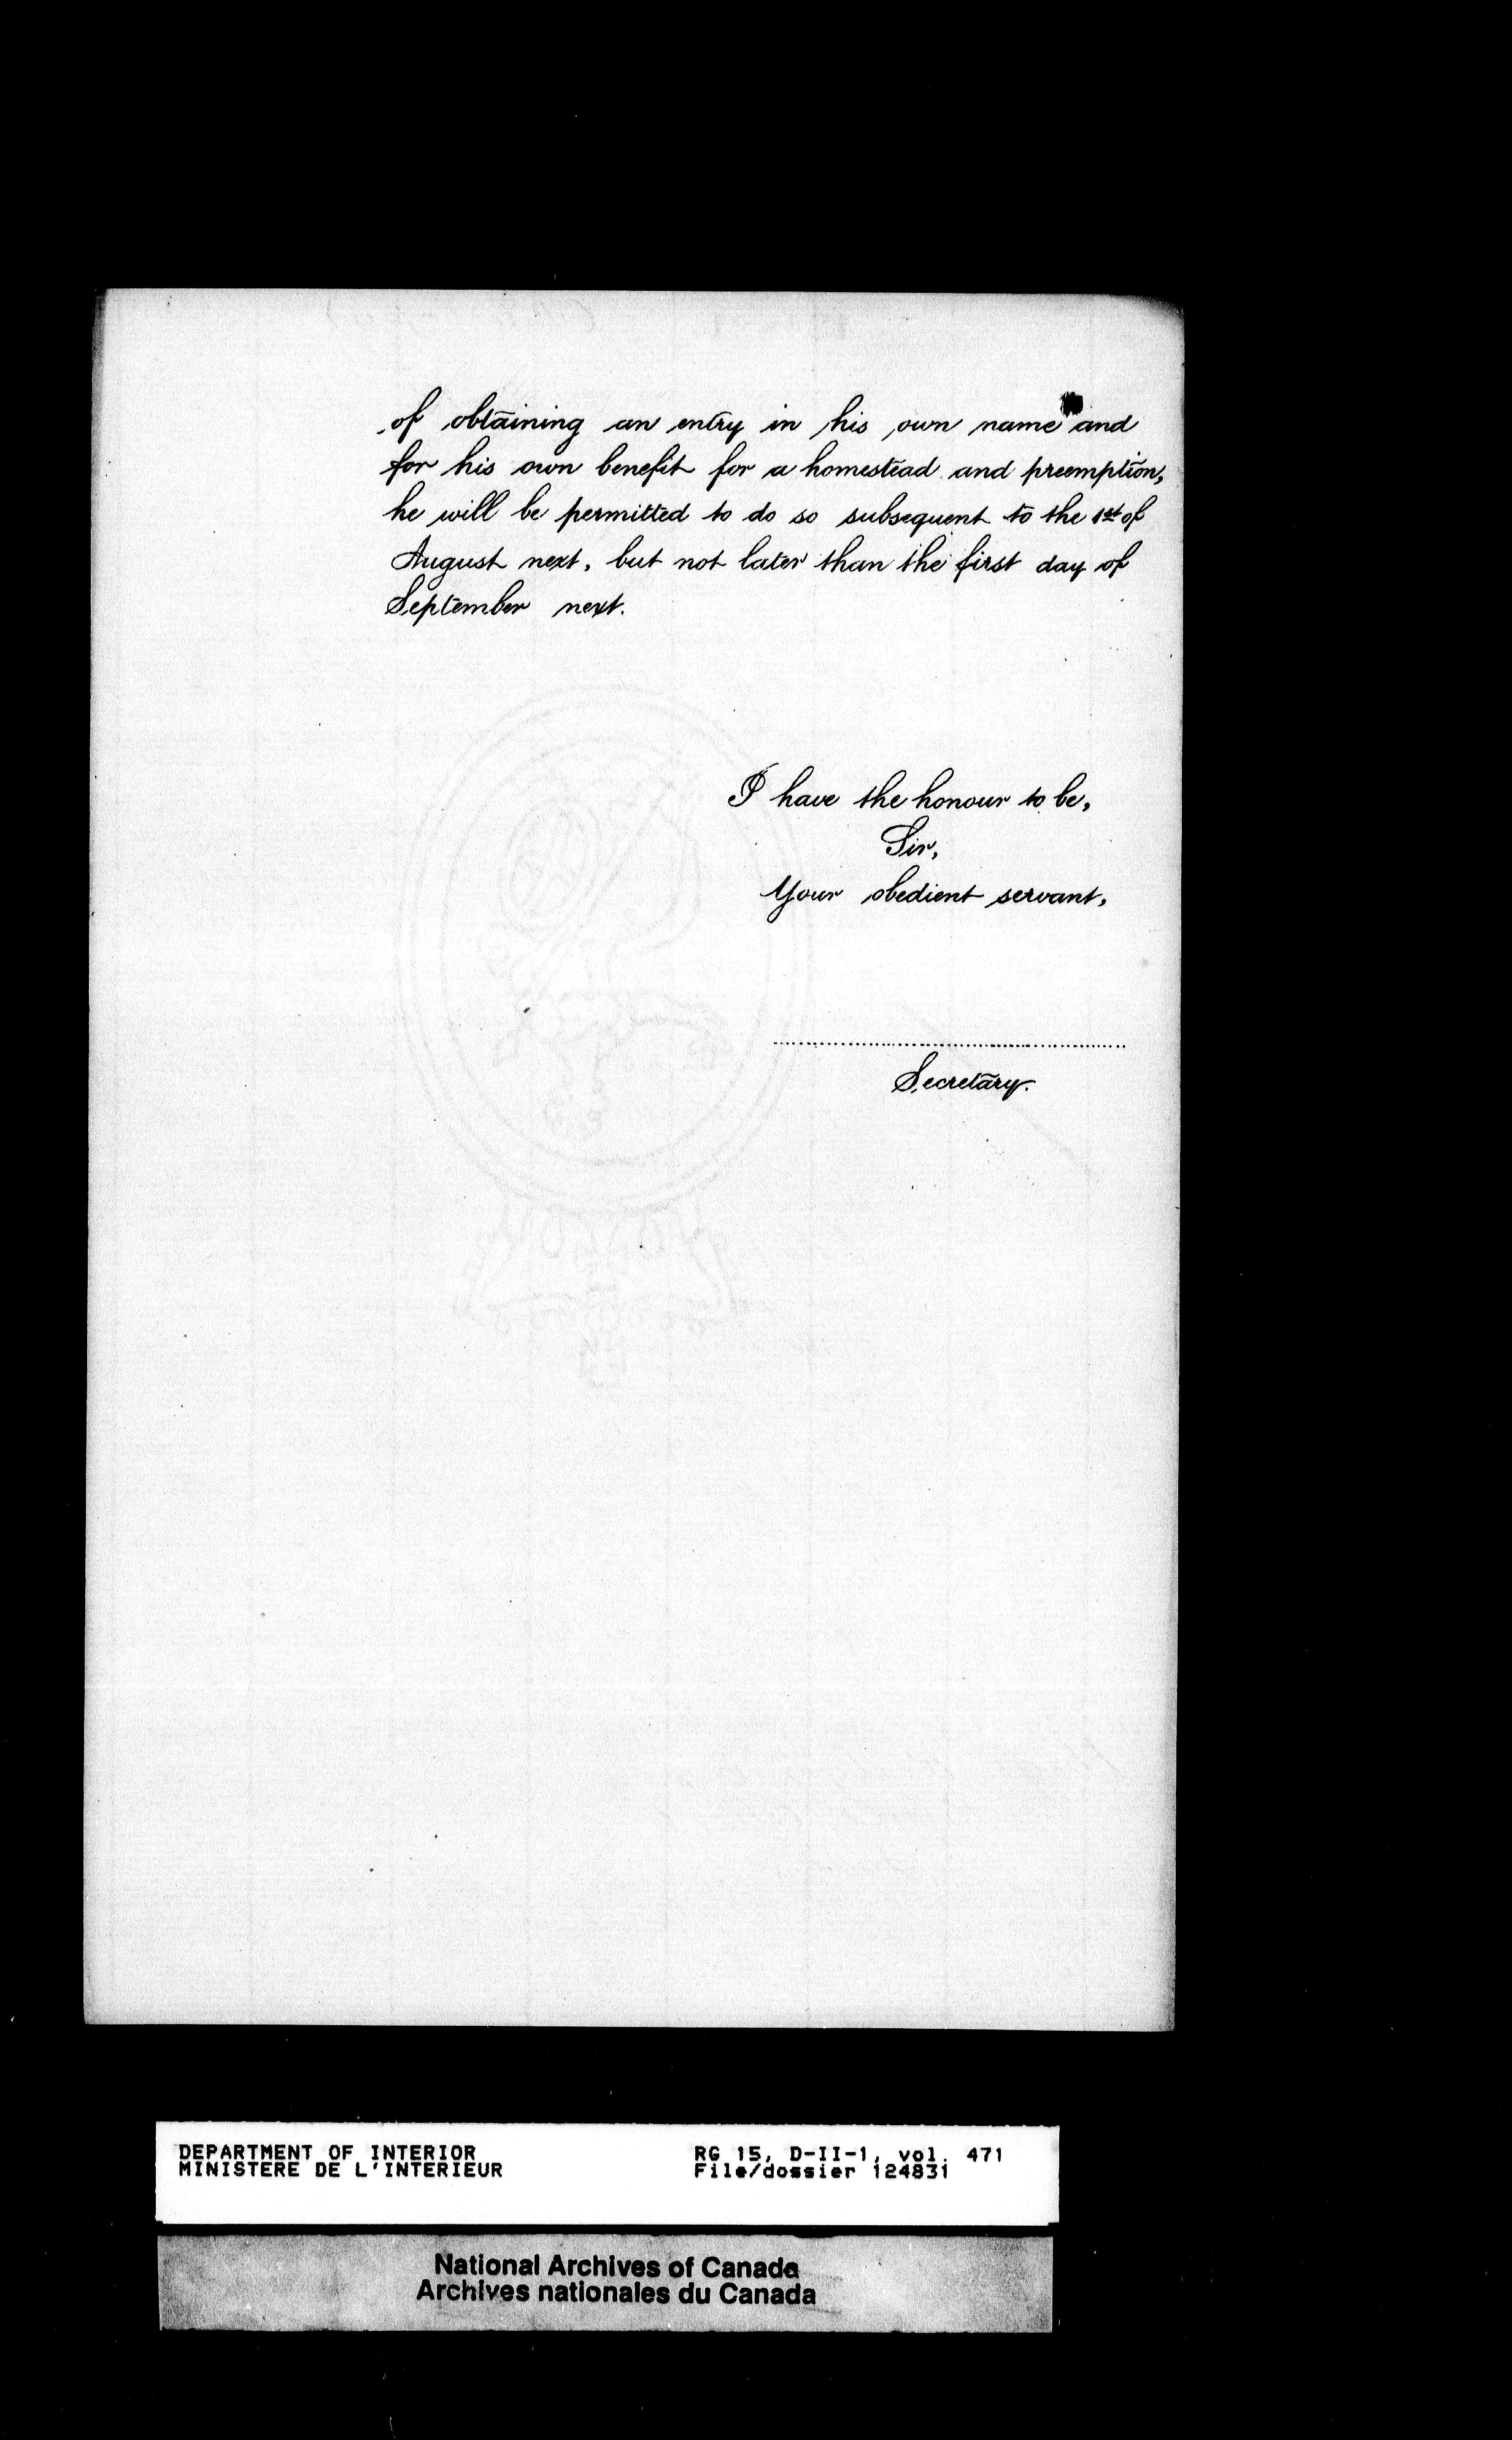 of obtaining an entry in his own name and
for his own benefit for a homestead and preemption,
he will be permitted to do so subsequent to the 1st of
August next, but not later than the first day of
September next.
I have the honour to be,
Sir,
Your obedient servant,
Secretary.
DEPARTMENT OF INTERIOR
MINISTERE DE L'INTERIEUR
RG 15, D-II-1, vol. 471
File/dossier 124831
National Archives of Canada
Archives nationales du Canada